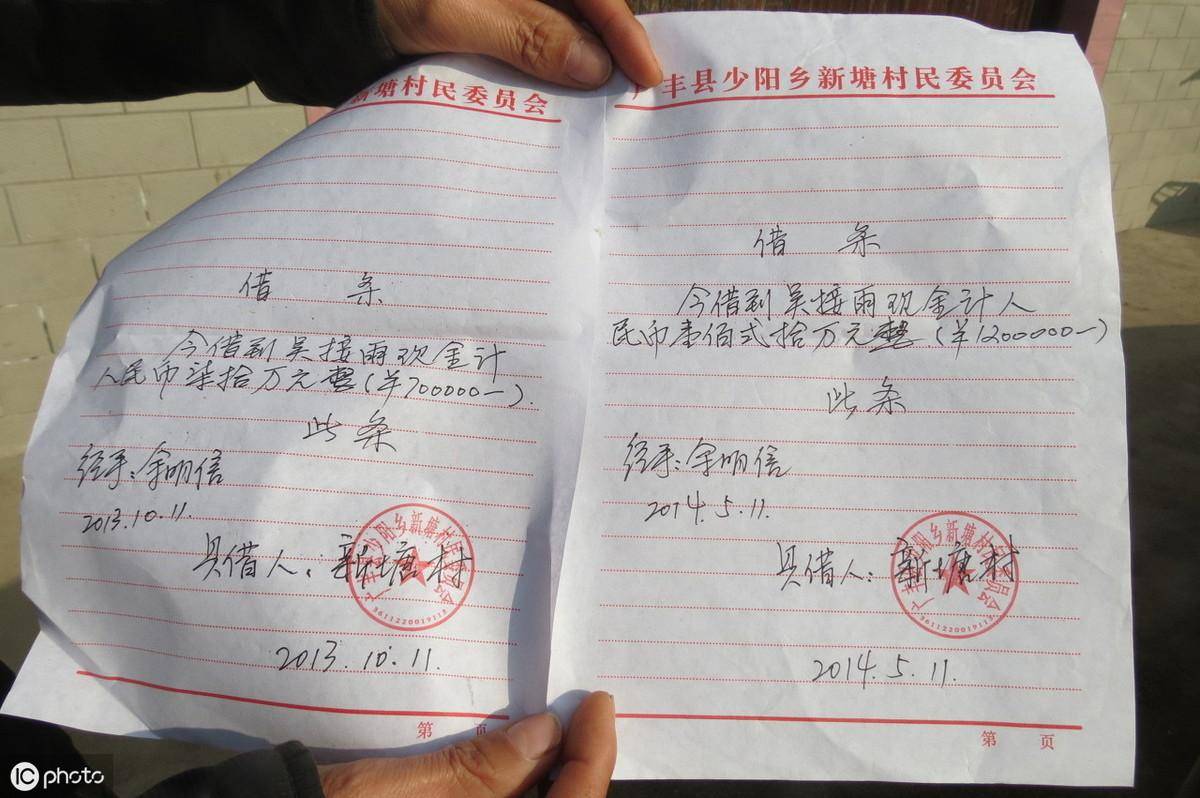 塘村民委员会
借 条
今借到吴接雨现金计
人民币柒拾万元整（￥700000—）.
此条
经手：余明信
2013.10.11.
具借人：新塘村
2013.10.11.
3611220019113
第 页
丰县少阳乡新塘村民委员会
借 条
今借到吴接雨现金计人
民币壹佰弍拾万元整（￥1200000—）
此条
经手：余明信
2014.5.11.
具借人：新塘村
2014.5.11.
3611220019113
第 页
IC photo